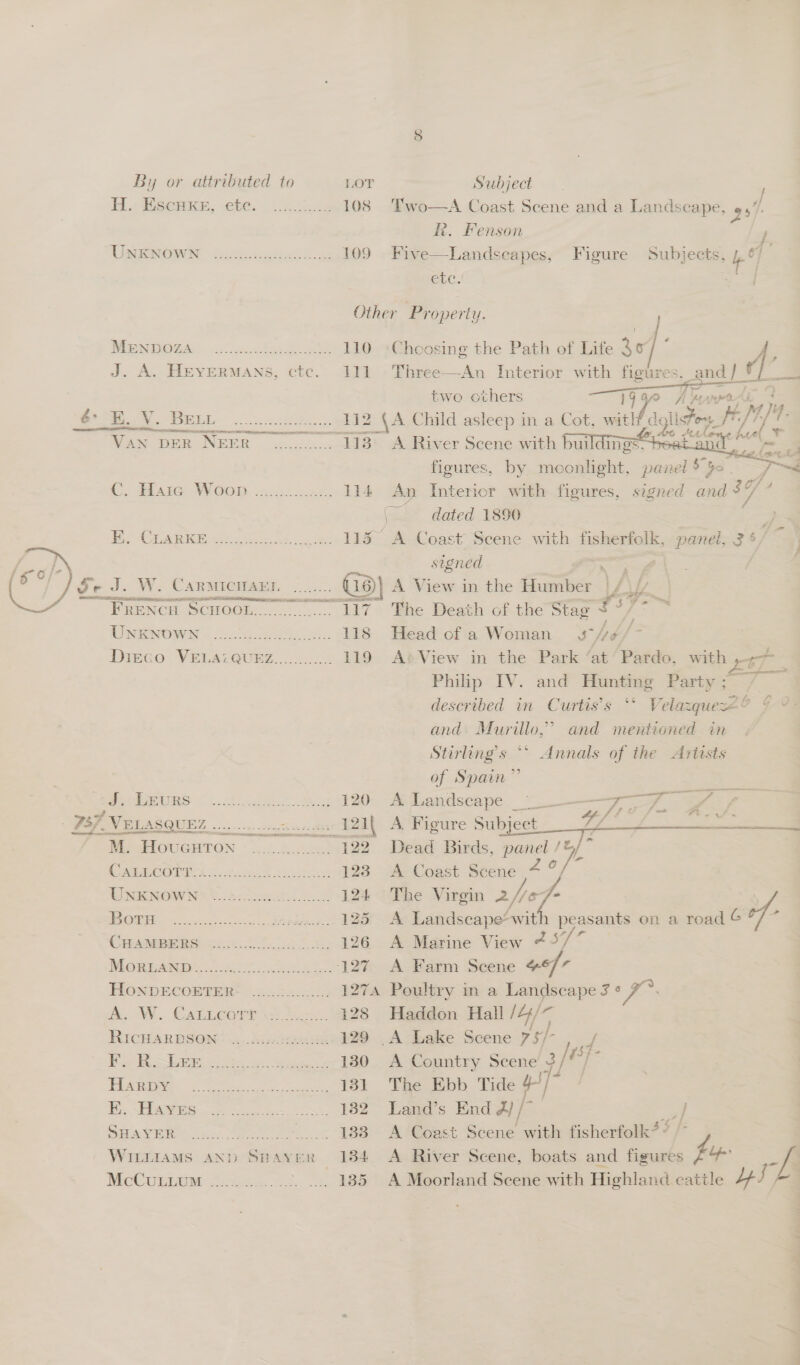 8
By or attributed to LOT Subject
H. ESCHKE, etc. ............ 108 Two—A Coast Scene and a Landscape,
R. Fenson
UNKNOWN ........................ 109 Five—Landscapes, Figure Subjects,
etc.
Other Property.
MENDOZA ........................ 110 Choosing the Path of Life 30/-
J. A. HEYERMANS, etc. 111 Three—An Interior with figures, and
two others
E. V. BELL ........................ 112 A Child asleep in a Cot, with dolls
VAN DER NEER ............ 113 A River Scene with buildings, boat and
figures, by moonlight, panel
C. HAIG WOOD ............... 114 An Interior with figures, signed and
dated 1890
E. CLARKE ........................ 115 A Coast Scene with fisherfolk, panel,
signed
(50/-) J. W. CARMICHAEL ........ 116 A View in the Humber
FRENCH SCHOOL............... 117 The Death of the Stag
UNKNOWN ........................ 118 Head of a Woman
DIEGO VELAZQUEZ............ 119 A View in the Park at Pardo, with
Philip IV. and Hunting Party;
described in Curtis's "Velazquez
and Murillo," and mentioned in
Stirling's "Annals of the Artists
of Spain"
J. LEURS ........................ 120 A Landscape
VELASQUEZ ........................ 121 A Figure Subject
M. HOUGHTON ............... 122 Dead Birds, panel
CALLCOTT........................ 123 A Coast Scene
UNKNOWN ........................ 124 The Virgin
BOTH ........................ 125 A Landscape with peasants on a road
CHAMBERS ........................ 126 A Marine View
MORLAND ........................ 127 A Farm Scene
HONDECOETER ............... 127A Poultry in a Landscape
A. W. CALLCOTT ............ 128 Haddon Hall
RICHARDSON ..................... 129 A Lake Scene 75/-
F. R. LEE ........................ 130 A Country Scene
HARDY ........................ 131 The Ebb Tide
E. HAYES ........................ 132 Land's End
SHAYER ........................ 133 A Coast Scene with fisherfolk
WILLIAMS AND SHAYER 134 A River Scene, boats and figures
MCCULLUM ..................... 135 A Moorland Scene with Highland cattle